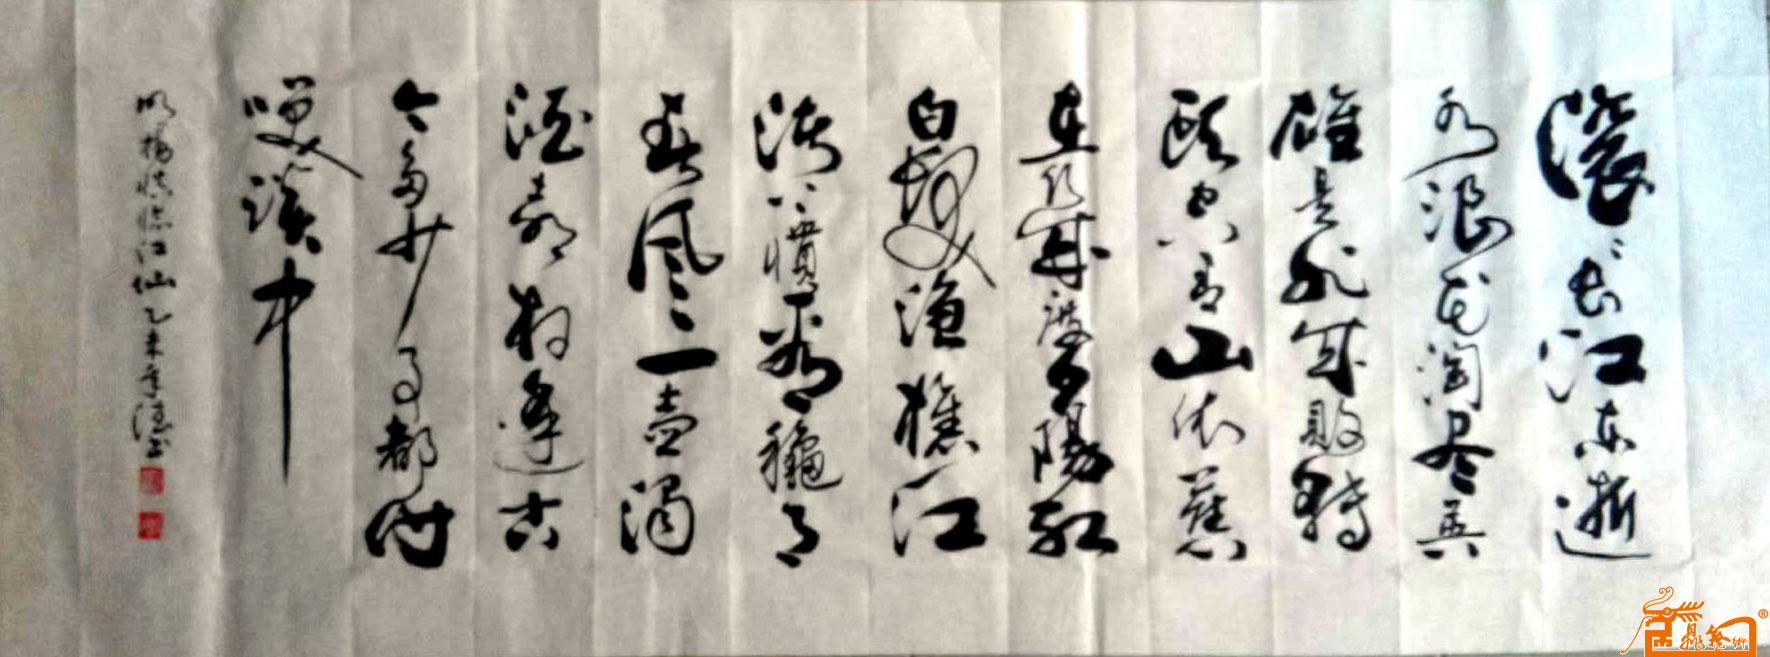 滚〻长江东逝
水浪花淘尽英
雄是非成败转
头空青山依旧
在几度夕阳红
白发渔樵江
渚上惯看秋月
春风一壶浊
酒喜相逢古
今多少事都付
笑谈中
明杨慎临江仙乙未年